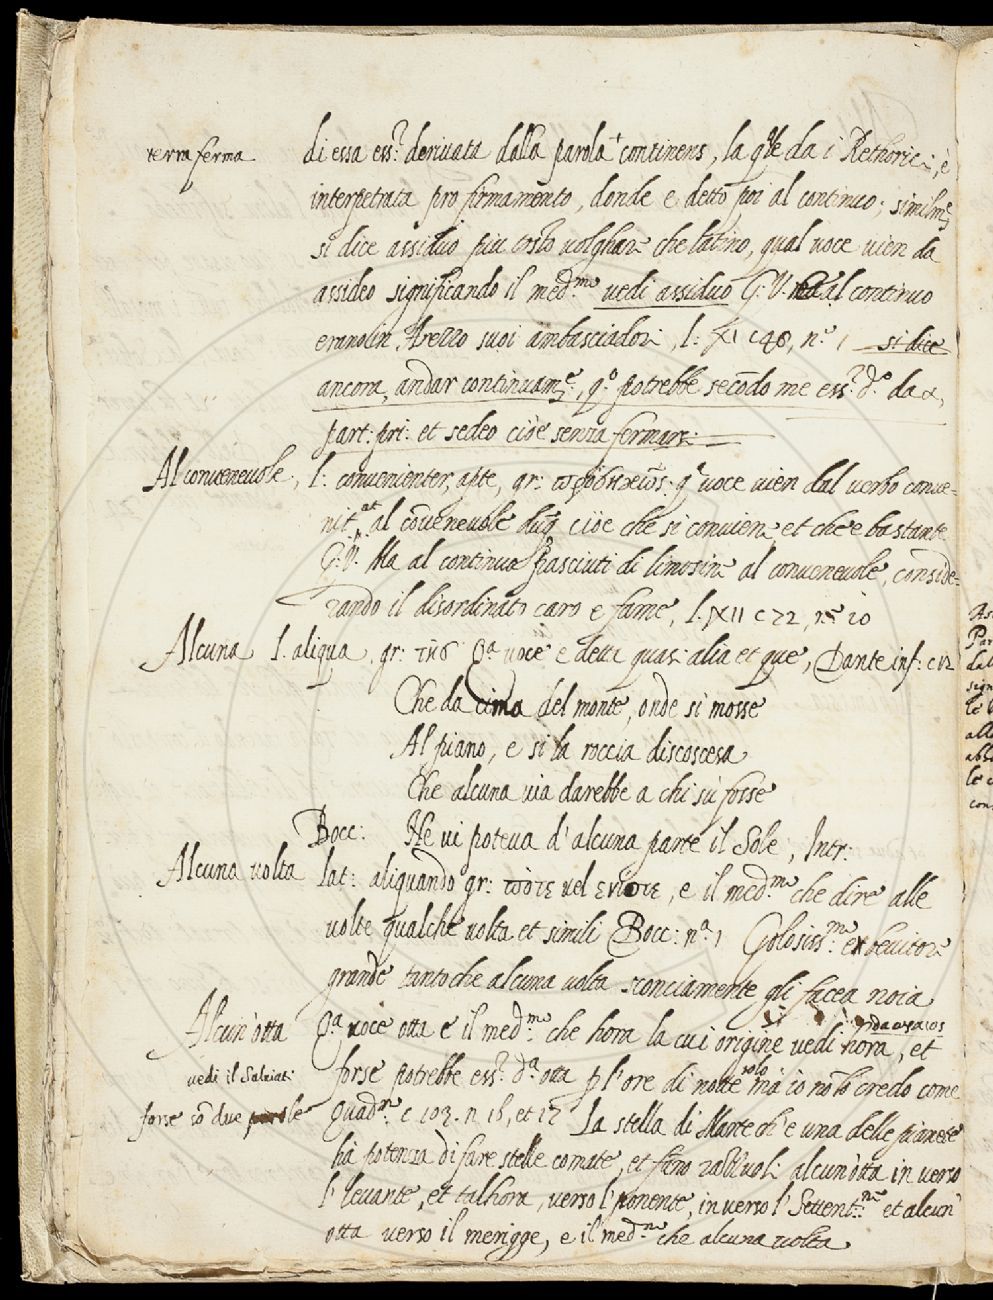 terra ferma
di essa ess.r derivata dalla parola + continens, la qle da i Rethorici, è
interpetrata pro firmamento, donde e detto poi al continuo; similme
si dice assiduo piu tosto uolghare che latino, qual uoce uien da
assideo significando il med.mo uedi assiduo G: V. al continuo
erano in Arezzo suoi ambasciadori, l: XI c 48, n.e 1 si dice
ancora, andar continuame, q.o potrebbe secodo me ess.r d.o da
part: pri: et sedeo cioè senza fermarsi
Al conueneuole, l: conuenienter, apte, gr: q.a uoce uien dal uerbo conue=
nit, al coueneuole duq cioe che si conuiene et che e bastante
G: V. Ma al continuo pasciuti di limosine al conueneuole, conside=
rando il disordinato caro e fame, l. XII c 72, n.e 20
Alcuna l. aliqua, gr: τὶς Q.a uoce e detta quasi alia et que, Dante inf: c 12
Che da cima del monte, onde si mosse
Al piano, e si la roccia discoscesa
Che alcuna uia darebbe a chi sù fosse
Bocc: Ne ui poteua d'alcuna parte il Sole, Intr:
Alcuna uolta lat: aliquando gr: πότε uel ενίοτε, e il med.mo che dire alle
uolte qualche uolta et simili Bocc: n.a 1 Golosiss.mo e beuitore
grande tanto che alcuna uolta sconciamente gli facea noia
Alcun'otta Q.a uoce otta e il med.mo che hora la cui origine uedi hora, et
uedi il Saluiati
forse potrebbe ess.r d.a otta p l'ore di notte solo ma io no lo credo come
forse so due parole
Quad.e c 103. n 16, et 17 La stella di Marte ch'e una delle pianete
hà potenza di fare stelle comate, et fano alcun'otta in uerso
l'leuante, et talhora, uerso l'ponente, in uerso l'Settent.ne et alcun'
otta uerso il merigge, e il med.mo che alcuna uolta